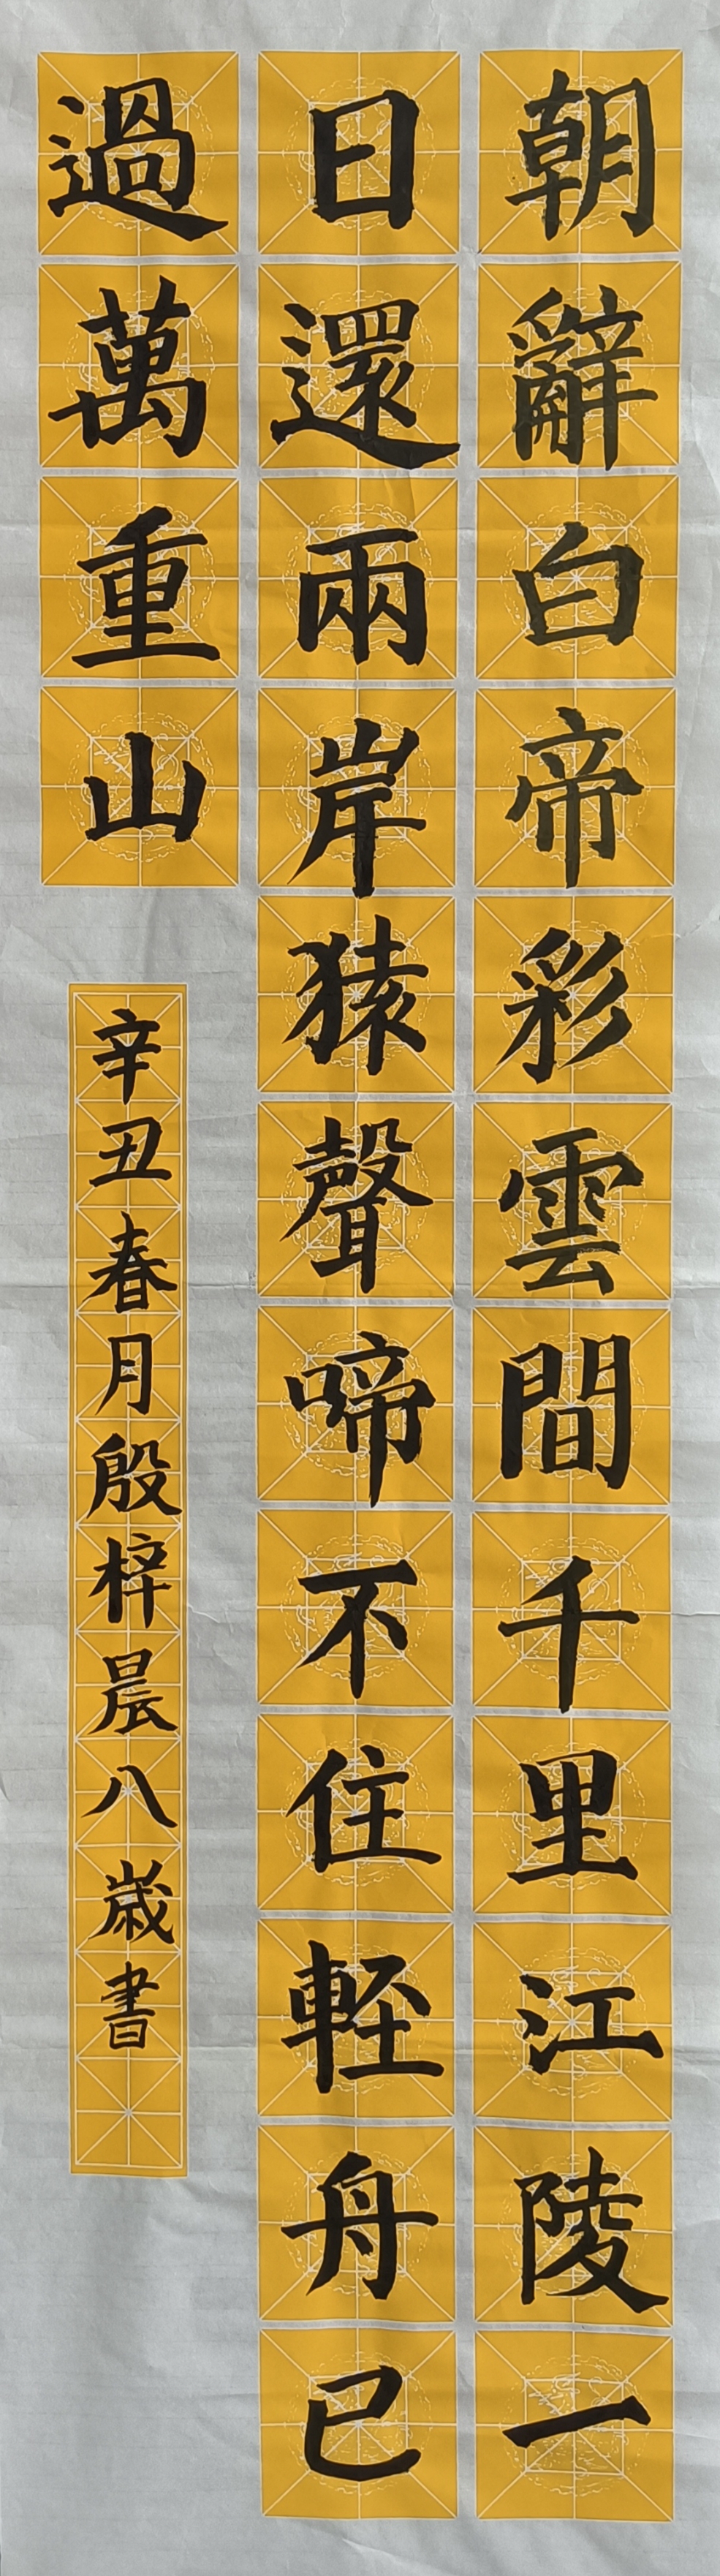 朝辭白帝彩雲間千里江陵一
日還兩岸猿聲啼不住輕舟已
過萬重山
辛丑春月殷梓晨八歲書